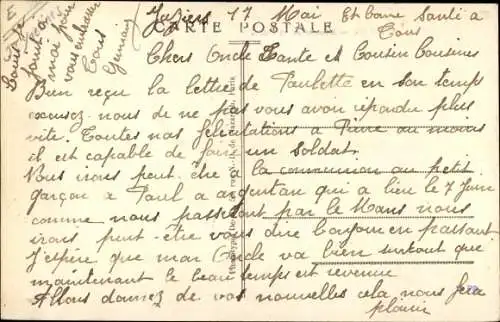 Juziers 17 Mai Et bonne Santé à
Tous
CARTE POSTALE
Chers Oncle Tante et Cousin Cousines
Bien reçu la lettre de Paulette en son temps
excusez-nous de ne pas vous avoir répondu plus
vite. Toutes nos félicitations à Pierre au moins
il est capable de faire un soldat.
Nous irons peut-être à la communion au petit
garçon à Paul à argentan qui a lieu le 7 Juin
comme nous passerons par le Mans nous
irons peut-être vous dire bonjour en passant
J'espère que mon Oncle va bien surtout que
maintenant le beau temps est revenu
Allons donnez de vos nouvelles cela nous fera
plaisir
pour
moi pour
vous embrasser
Tous
Germain